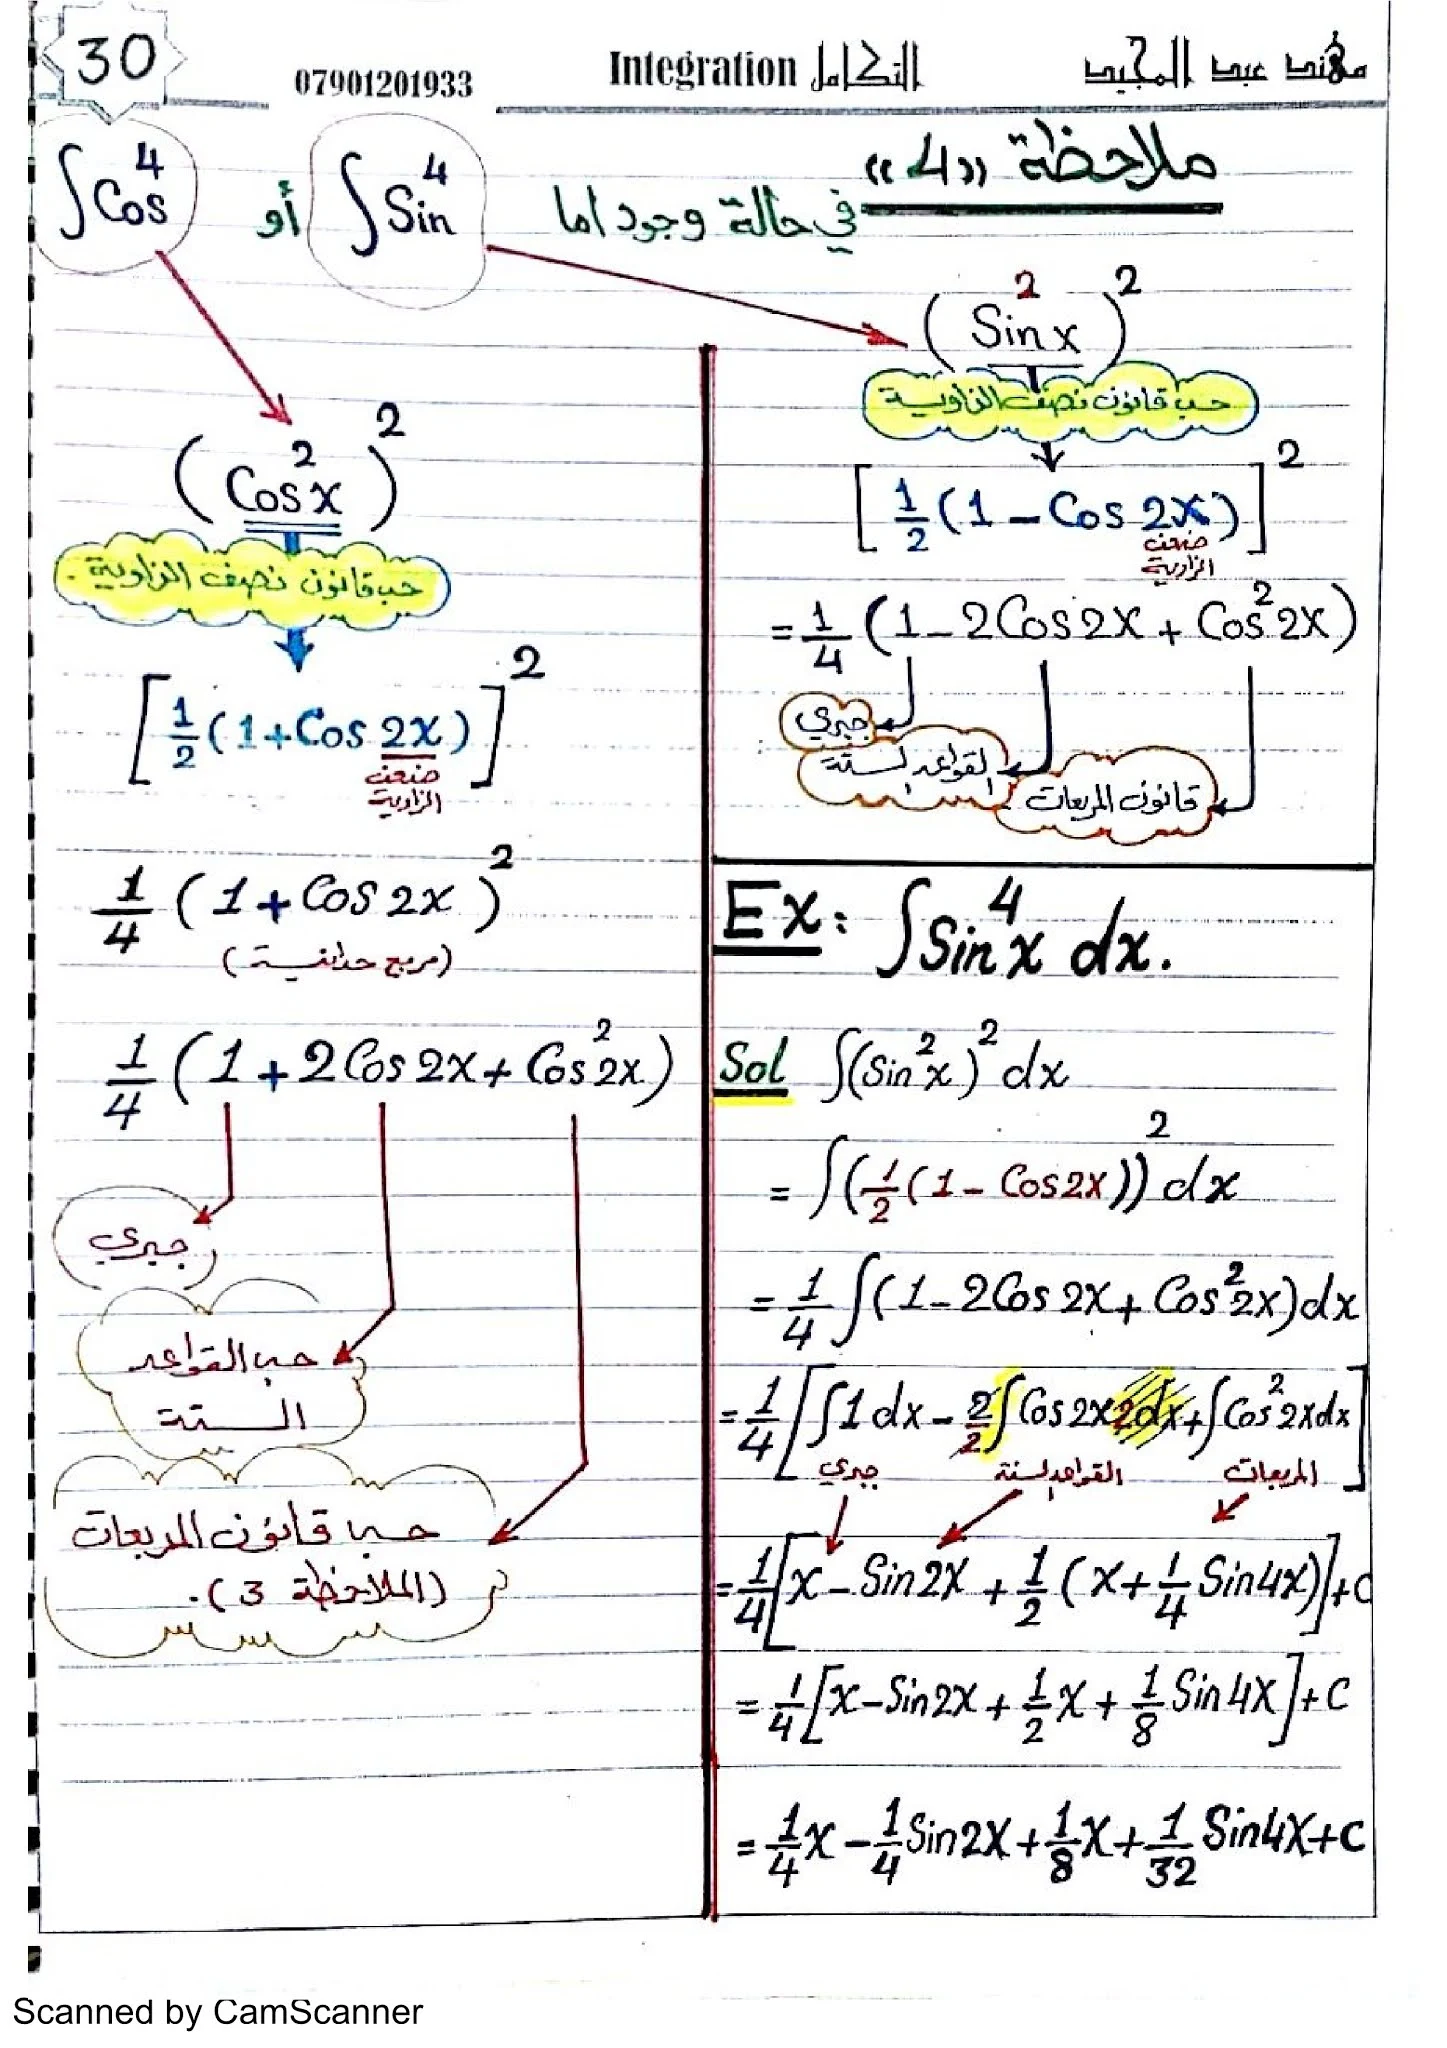 30
07901201933
Integration التكامل
مهند عبد المجيد
ملاحظة «4»
في حالة وجود اما ∫Sin⁴ أو ∫Cos⁴
(Sin²x)²
حسب قانون نصف الزاوية
[1/2 (1 - Cos 2x)]²
ضعف
الزاوية
= 1/4 (1 - 2Cos2x + Cos²2x)
جبري
القواعد الستة
قانون المربعات
(Cos²x)²
حسب قانون نصف الزاوية.
[1/2 (1 + Cos 2x)]²
ضعف
الزاوية
1/4 (1 + Cos 2x)²
(مربع حدانية)
1/4 (1 + 2Cos 2x + Cos²2x)
جبري
حسب القواعد
الستة
حسب قانون المربعات
(الملاحظة 3).
Ex: ∫Sin⁴x dx.
Sol ∫(Sin²x)² dx
= ∫(1/2 (1 - Cos2x))² dx
= 1/4 ∫(1 - 2Cos 2x + Cos²2x)dx
= 1/4 [∫1dx - 2/2 ∫Cos2x 2dx + ∫Cos²2xdx]
جبري القواعد الستة المربعات
= 1/4 [x - Sin2x + 1/2 (x + 1/4 Sin4x)] + C
= 1/4 [x - Sin2x + 1/2 x + 1/8 Sin4x] + C
= 1/4 x - 1/4 Sin2x + 1/8 x + 1/32 Sin4x + C
Scanned by CamScanner